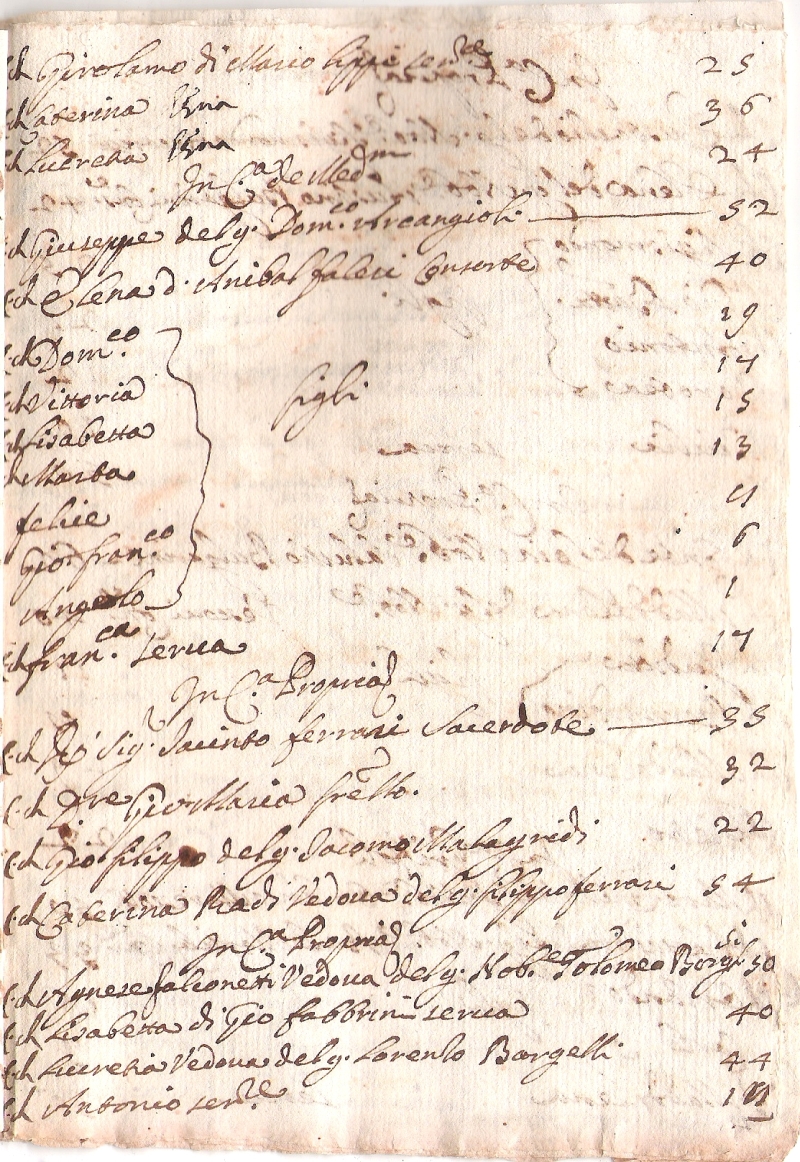 C. ch Girolamo di Mario Lippi ser.re 25
C. ch Caterina 36
C. ch Lucretia 24
In C.a de Med.m
C. ch Giuseppe del q. Dom.co Arcangioli 52
C. ch Elena d. Anibal faleri Consorte 40
C. ch Dom.co 19
C. ch Vittoria figli 14
C. ch Lisabetta 15
Marta 13
felice 11
Gio: fran.co 6
Angelo 1
C. ch fran.ca serua 17
In C.a Propria
C. ch Sig. Jacinto ferrari Sacerdote 35
C. ch Gio Maria frello. 32
C. ch Gio filippo del q. Jacomo Malagridi 22
C. ch Caterina Radi Vedoua del q. filippo ferrari 54
In C.a Propria
C. ch Agnese falconetti Vedoua del q. Nob.e Tolomeo Borg.si 50
C. ch Lisabetta di Gio fabbrini serua 40
C. ch Lucretia Vedoua del q. Lorenzo Bargelli 44
C. ch Antonio ser.re